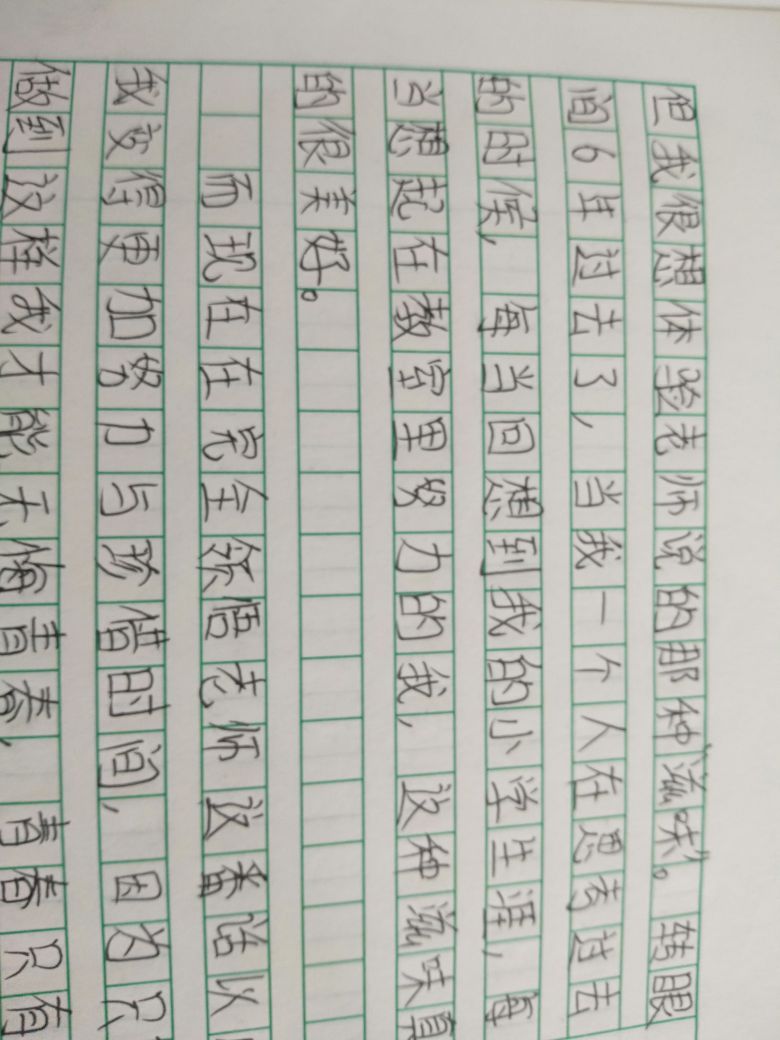 但我很想体验老师说的那种“滋味”。转眼
间6年过去了，当我一个人在思考过去
的时候，每当回想到我的小学生涯，每
当想起在教室里努力的我，这种滋味真
的很美好。
而现在在完全领悟老师这番话以
我变得更加努力与珍惜时间，因为只
做到这样我才能不悔青春，青春只有